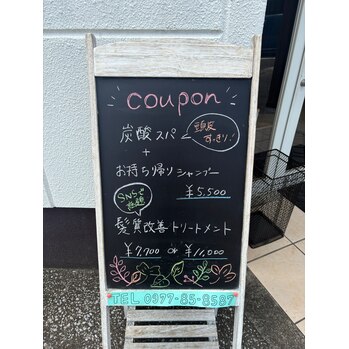 coupon
炭酸スパ
頭皮
すっきり!
+
お持ち帰りシャンプー
¥5,500
SNSで
話題
髪質改善トリートメント
¥7,700 or ¥11,000
TEL 0977-85-8587